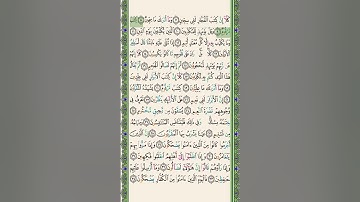 كَلَّا إِنَّ كِتَٰبَ ٱلْفُجَّارِ لَفِى سِجِّينٍ وَمَآ أَدْرَىٰكَ مَا سِجِّينٌ كِتَٰبٌ
مَّرْقُومٌ وَيْلٌ يَوْمَئِذٍ لِّلْمُكَذِّبِينَ ٱلَّذِينَ يُكَذِّبُونَ بِيَوْمِ ٱلدِّينِ
وَمَا يُكَذِّبُ بِهِۦٓ إِلَّا كُلُّ مُعْتَدٍ أَثِيمٍ
كَلَّا
رَّبِّهِمْ يَوْمَئِذٍ لَّمَحْجُوبُونَ ثُمَّ إِنَّهُمْ لَصَالُوا۟ ٱلْجَحِيمِ ثُمَّ يُقَالُ
هَٰذَا ٱلَّذِى كُنتُم بِهِۦ تُكَذِّبُونَ كَلَّآ إِنَّ كِتَٰبَ ٱلْأَبْرَارِ لَفِى
عِلِّيِّينَ وَمَآ أَدْرَىٰكَ مَا عِلِّيُّونَ كِتَٰبٌ مَّرْقُومٌ يَشْهَدُهُ ٱلْمُقَرَّبُونَ
إِنَّ ٱلْأَبْرَارَ لَفِى نَعِيمٍ عَلَى ٱلْأَرَآئِكِ يَنظُرُونَ تَعْرِفُ فِى
وُجُوهِهِمْ نَضْرَةَ ٱلنَّعِيمِ يُسْقَوْنَ مِن رَّحِيقٍ مَّخْتُومٍ
وَفِى ذَٰلِكَ فَلْيَتَنَافَسِ ٱلْمُتَنَٰفِسُونَ وَمِزَاجُهُۥ
مِن تَسْنِيمٍ عَيْنًا يَشْرَبُ بِهَا ٱلْمُقَرَّبُونَ إِنَّ ٱلَّذِينَ
أَجْرَمُوا۟ كَانُوا۟ مِنَ ٱلَّذِينَ ءَامَنُوا۟ يَضْحَكُونَ وَإِذَا مَرُّوا۟ بِهِمْ
يَتَغَامَزُونَ وَإِذَا ٱنقَلَبُوٓا۟ إِلَىٰٓ أَهْلِهِمُ ٱنقَلَبُوا۟ فَكِهِينَ
وَإِذَا رَأَوْهُمْ قَالُوٓا۟ إِنَّ هَٰٓؤُلَآءِ لَضَآلُّونَ وَمَآ أُرْسِلُوا۟ عَلَيْهِمْ
حَٰفِظِينَ فَٱلْيَوْمَ ٱلَّذِينَ ءَامَنُوا۟ مِنَ ٱلْكُفَّارِ يَضْحَكُونَ